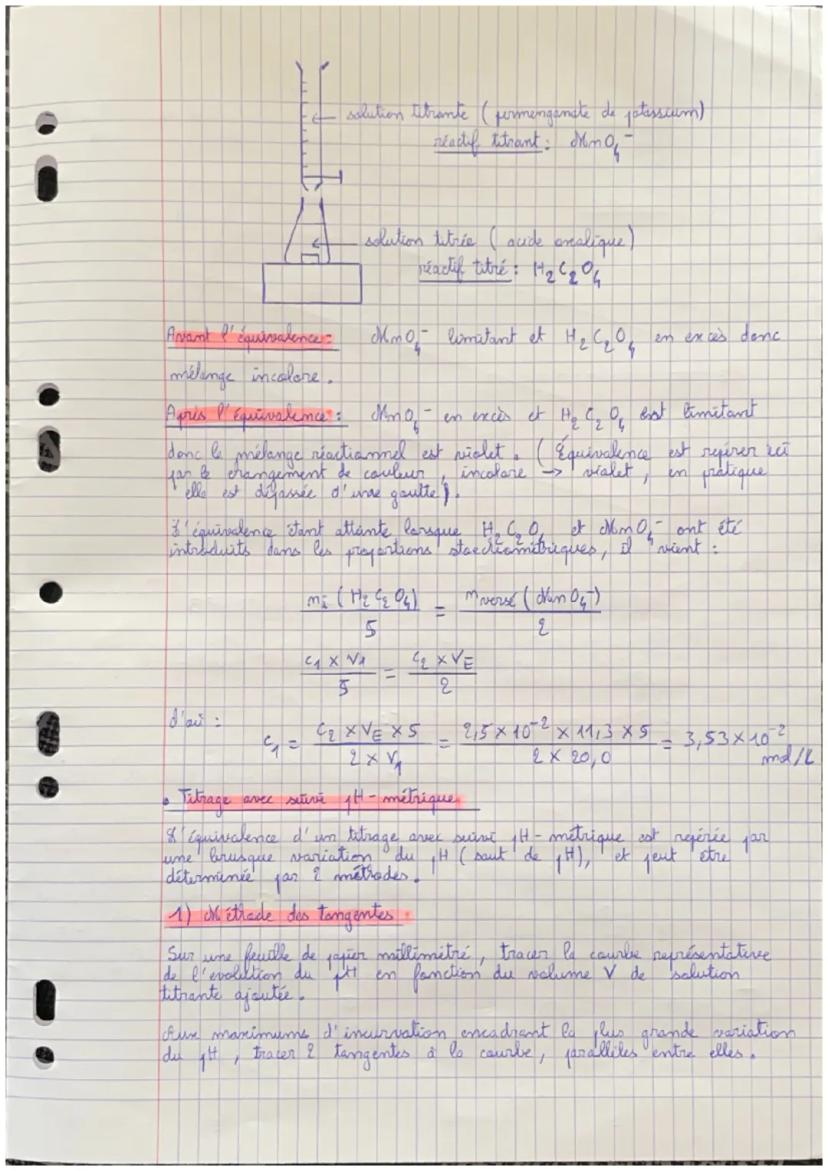 solution titrante ( permenganate de potassium)
réactif titrant : MnO₄⁻
solution titrée ( acide oxalique)
réactif titré : H₂C₂O₄
Avant l'équivalence : MnO₄⁻ limitant et H₂C₂O₄ en excès donc
mélange incolore.
Après l'équivalence : MnO₄⁻ en excès et H₂C₂O₄ est limitant
donc le mélange réactionnel est violet. ( Équivalence est repérer ici
par le changement de couleur, incolore → violet, en pratique
elle est dépassée d'une goutte).
L'équivalence étant atteinte lorsque H₂C₂O₄ et MnO₄⁻ ont été
introduits dans les proportions stoechiométriques, il vient :
ni (H₂C₂O₄) / 5 = nversé (MnO₄⁻) / 2
c₁ × V₁ / 5 = c₂ × VE / 2
d'où :
c₁ = c₂ × VE × 5 / 2 × V₁ = 2,5 × 10⁻² × 11,3 × 5 / 2 × 20,0 = 3,53 × 10⁻² mol/L
• Titrage avec suivi pH-métrique
L'équivalence d'un titrage avec suivi pH-métrique est repérée par
une brusque variation du pH ( saut de pH), et peut être
déterminée par 2 méthodes.
1) Méthode des tangentes :
Sur une feuille de papier millimétré, tracer la courbe représentative
de l'évolution du pH en fonction du volume V de solution
titrante ajoutée.
Aux maximums d'incurvation encadrant la plus grande variation
du pH, tracer 2 tangentes à la courbe, parallèles entre elles.